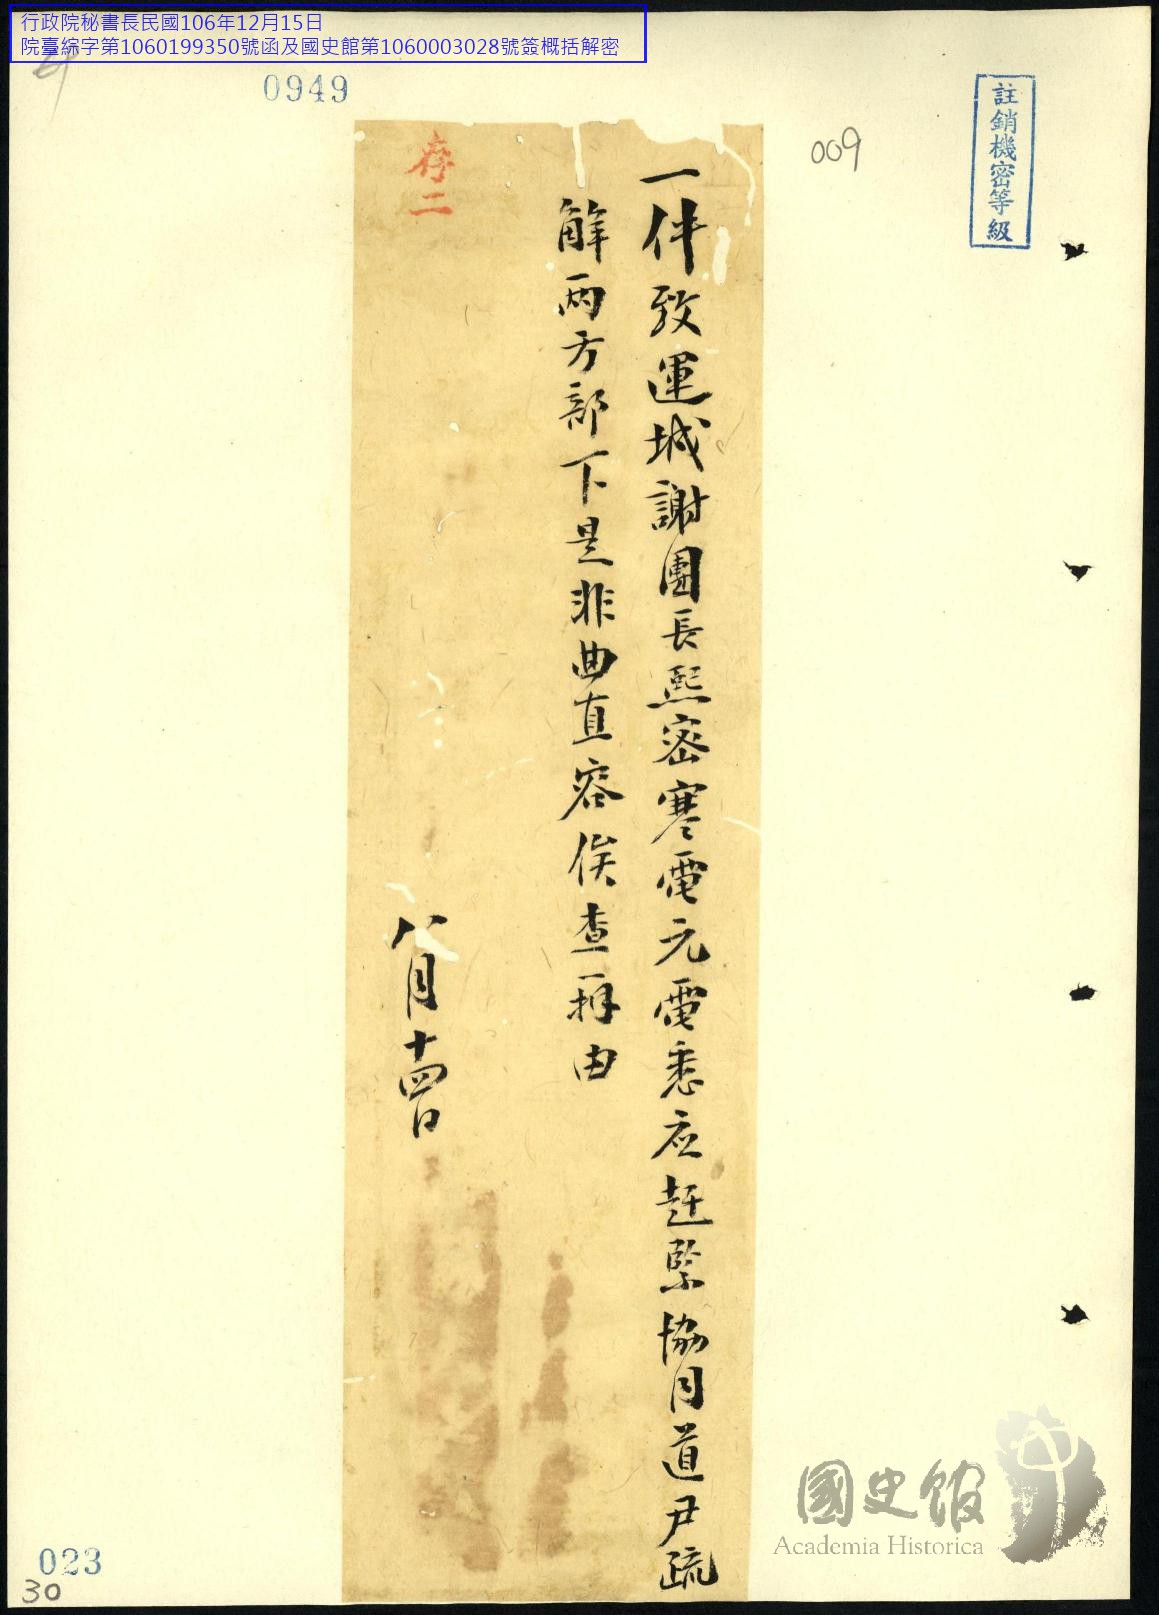 行政院秘書長民國106年12月15日
院臺綜字第1060199350號函及國史館第1060003028號簽概括解密
0949
009
註銷機密等級
存二
一件致運城謝團長熙密寒電元電悉应赶緊協同道尹疏
解兩方部下是非曲直容俟查辦由
八月十四日
國史館
Academia Historica
023
30